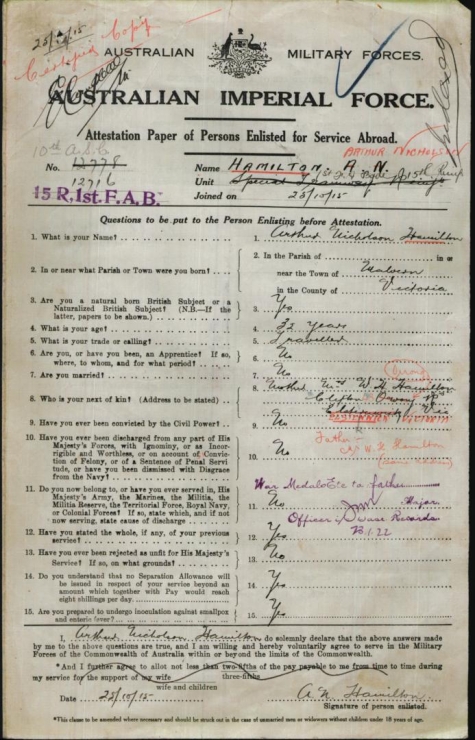 23/10/15
Certified Copy
AUSTRALIAN MILITARY FORCES.
AUSTRALIAN IMPERIAL FORCE.
Attestation Paper of Persons Enlisted for Service Abroad.
ARTHUR NICHOLSON
No. 12778 Name HAMILTON A. N.
12716 Unit Special Tramway
15 R, 1st. F.A.B. Joined on 23/10/15
Questions to be put to the Person Enlisting before Attestation.
1. What is your Name? 1. Arthur Nicholson Hamilton
2. In or near what Parish or Town were you born? 2. In the Parish of in or
near the Town of Malvern
in the County of Victoria
3. Are you a natural born British Subject or a
Naturalized British Subject? (N.B.—If the
latter, papers to be shown.) 3. Yes
4. What is your age? 4. 32 years
5. What is your trade or calling? 5. Traveller
6. Are you, or have you been, an Apprentice? If so,
where, to whom, and for what period? 6. No
7. Are you married? 7. No
8. Who is your next of kin? (Address to be stated) 8. Mother Mrs W. H. Hamilton
Clifton
Elsternwick Vic
9. Have you ever been convicted by the Civil Power? 9.
Father
10. Have you ever been discharged from any part of His
Majesty's Forces, with Ignominy, or as Incor-
rigible and Worthless, or on account of Convic-
tion of Felony, or of a Sentence of Penal Servi-
tude, or have you been Dismissed with Disgrace
from the Navy? 10. No
Hamilton
War Medals Etc to father
11. Do you now belong to, or have you ever served in, His
Majesty's Army, the Marines, the Militia, the
Militia Reserve, the Territorial Force, Royal Navy,
or Colonial Forces? If so, state which, and if not
now serving, state cause of discharge 11. No
Major
Officer i/c Base Records
12. Have you stated the whole, if any, of your previous
service? 12. Yes
13. Have you ever been rejected as unfit for His Majesty's
Service? If so, on what grounds? 13. No
14. Do you understand that no Separation Allowance will
be issued in respect of your service beyond an
amount which together with Pay would reach
eight shillings per day. 14. Yes
15. Are you prepared to undergo inoculation against smallpox
and enteric fever? 15. Yes
I, Arthur Nicholson Hamilton do solemnly declare that the above answers made
by me to the above questions are true, and I am willing and hereby voluntarily agree to serve in the Military
Forces of the Commonwealth of Australia within or beyond the limits of the Commonwealth.
*And I further agree to allot not less than two-fifths of the pay payable to me from time to time during
three-fifths
my service for the support of my wife
wife and children
Date 23/10/15 A. N. Hamilton
Signature of person enlisted.
*This clause to be amended where necessary and should be struck out in the case of unmarried men or widowers without children under 18 years of age.